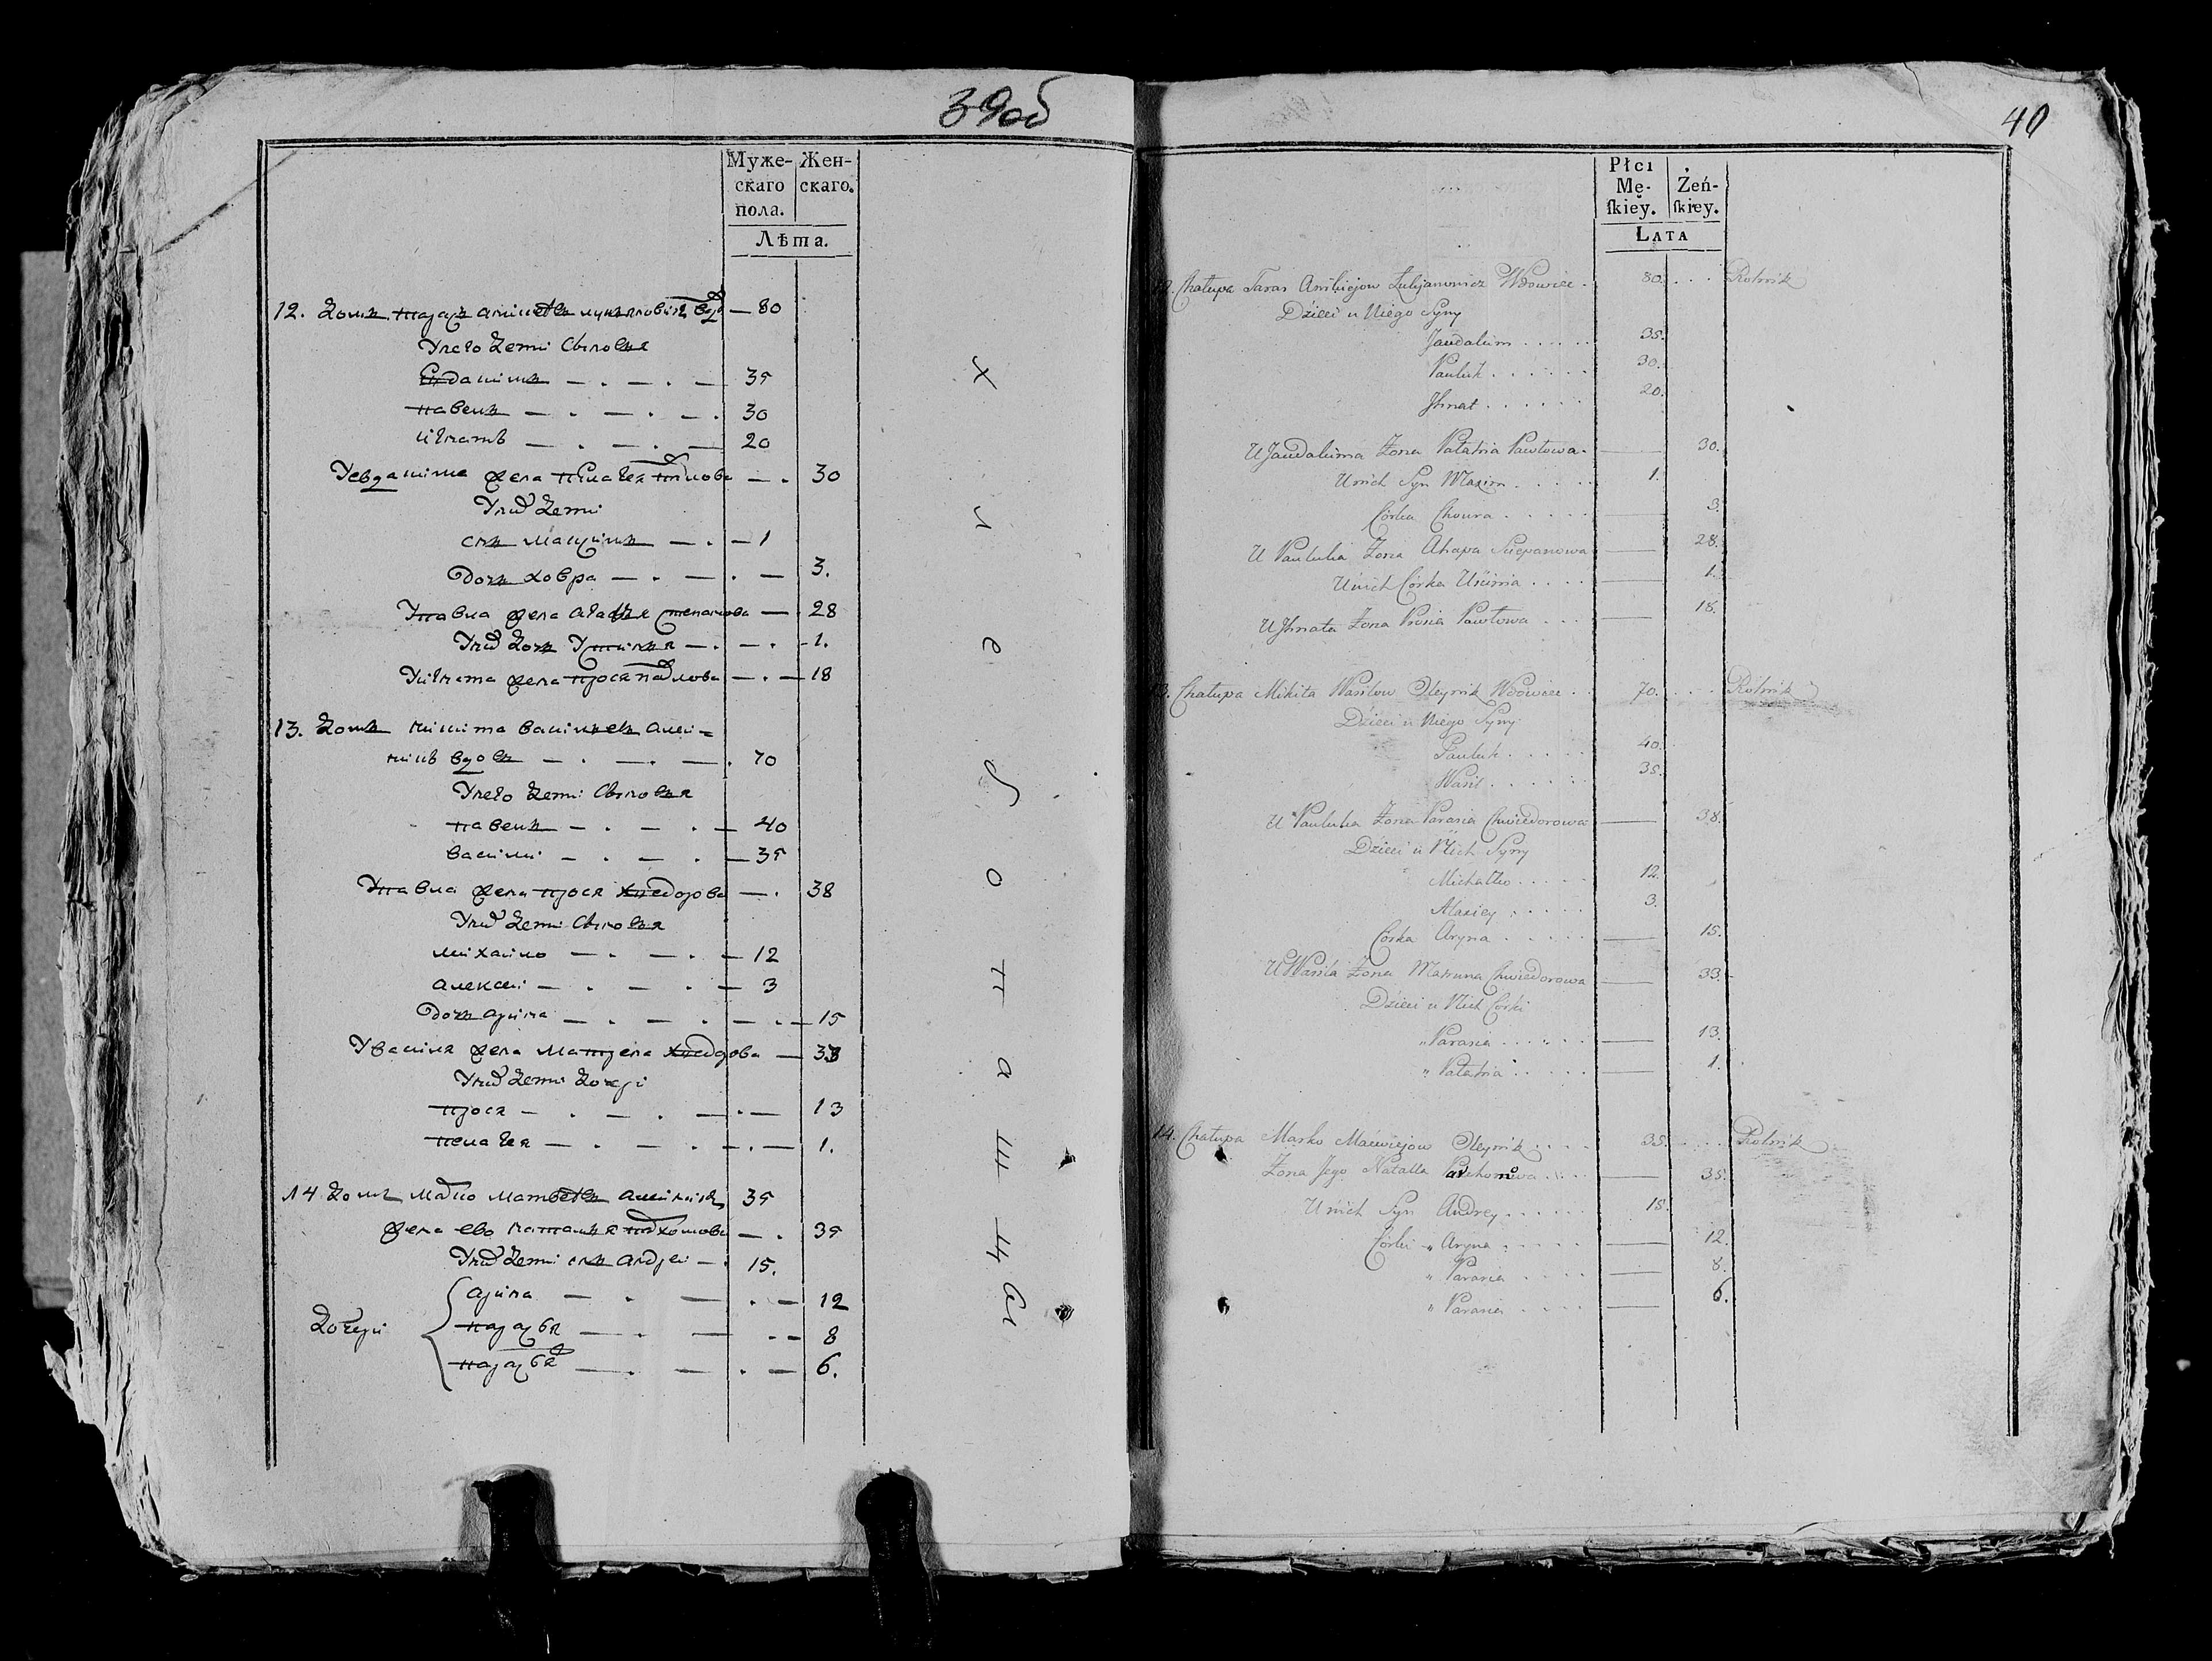 39об
Муже-
скаго
пола.
Жен-
скаго.
Лѣта.
12. Домъ 80
У него дети Сыновья
Евдакимъ 35
павелъ 30
игнатъ 20
У евдакима жена пелагея павлова 30
У них дети
сынъ максимъ 1
дочь ховра 3.
У павла жена агафья степанова 28
У них дочь Устинья 1.
У игната жена прося павлова 18
13. Домъ никита васильевъ алей-
никъ вдовъ 70
У него дети Сыновья
павелъ 40
василий 35
У павла жена прося хведорова 38
У них дети Сыновья
михайло 12
алексей 3
дочь арина 15
У василя жена матрена хведорова 33
У них дети дочери
прося 13
пелагея 1.
14 Домъ марко матвеевъ алейникъ 35
жена ево наталья пархомова 35
У них дети сынъ андрей 15.
дочери
арина 12
параскя 8
параскя 6.
х
л
е
б
о
п
а
ш
ц
ы
40
Płci
Mę-
skiey.
Żeń-
skiey.
LATA
12. Chałupa Taras Łukjanowicz Wdowiec 80. Rolnik
Dzieci u Niego Syny
Jaudakim 35.
Pauluk 30.
Jhnat 20.
U Jaudakima Żona Pałahia Pawłowa 30.
U nich Syn Maxim 1.
Córka Chowra 3.
U Pauluka Żona Ahapa Sciepanowa 28.
U nich Córka Uścinia 1.
U Jhnata Żona Prosia Pawłowa 18.
13. Chałupa Mikita Wasilow Oleynik Wdowiec 70. Rolnik
Dzieci u Niego Syny
Pauluk 40.
Wasil 35.
U Pauluka Żona Parasia Chwiedorowa 38.
Dzieci u Nich Syny
Michałko 12.
Alaxiey 3.
Córka Aryna 15.
U Wasila Żona Matruna Chwiedorowa 33.
Dzieci u Nich Córki
" Parasia 13.
" Pałahia 1.
14. Chałupa Marko Maćwiejow Oleynik 35. Rolnik
Żona Jego Natalla Parchomowa 35.
U nich Syn Andrey 15.
Córki " Aryna 12.
" Parasia 8.
" Parasia 6.